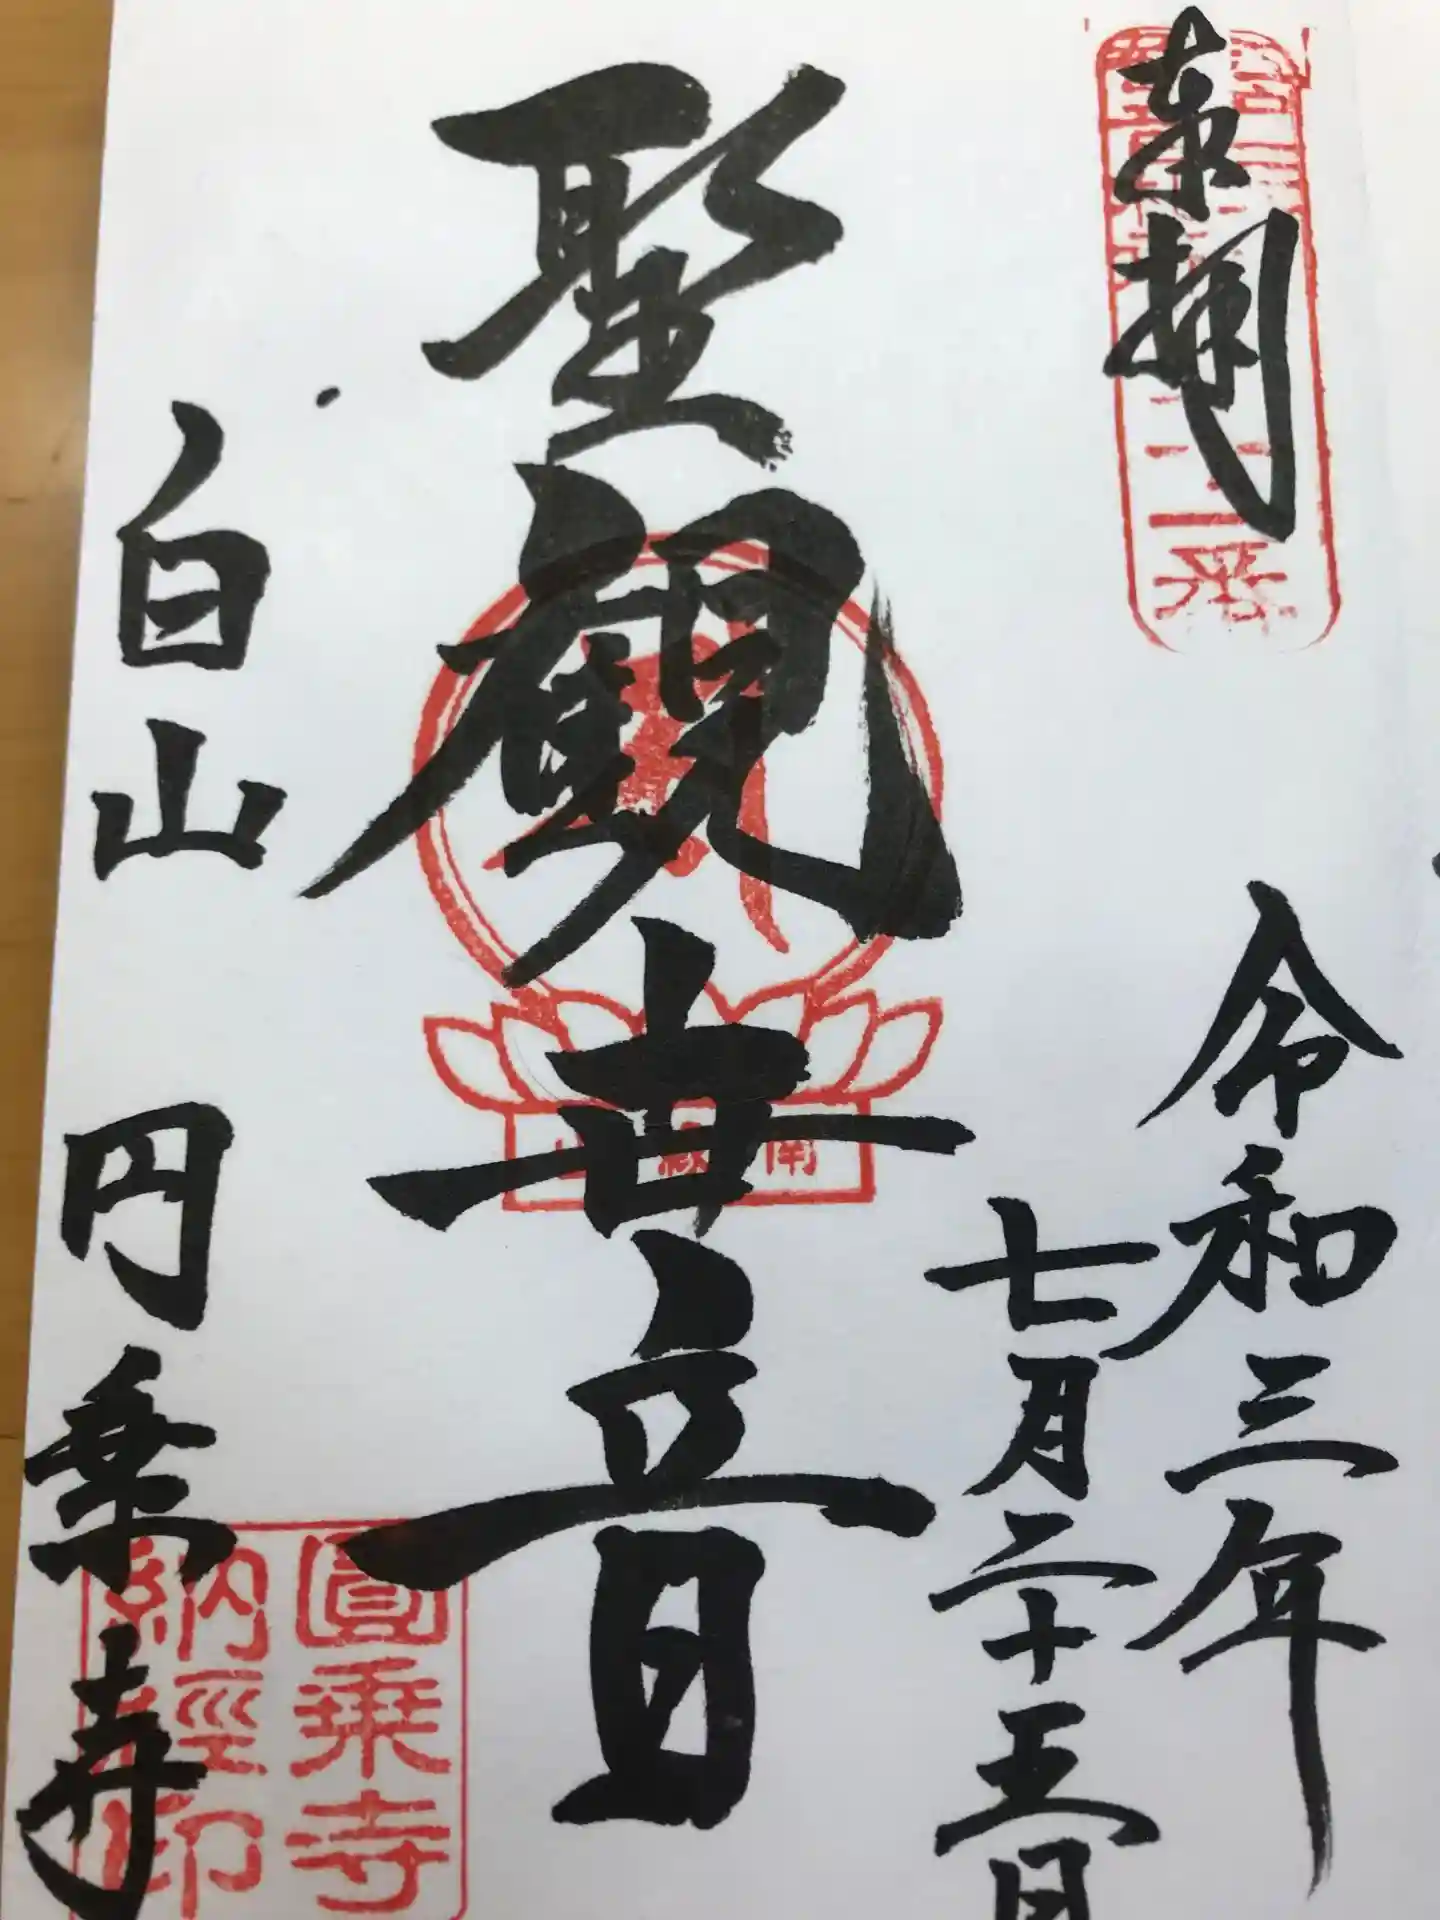 奉拝
令和三年
七月二十五日
聖観世音
白山 円乗寺
南縁山
圓乗寺
納經印